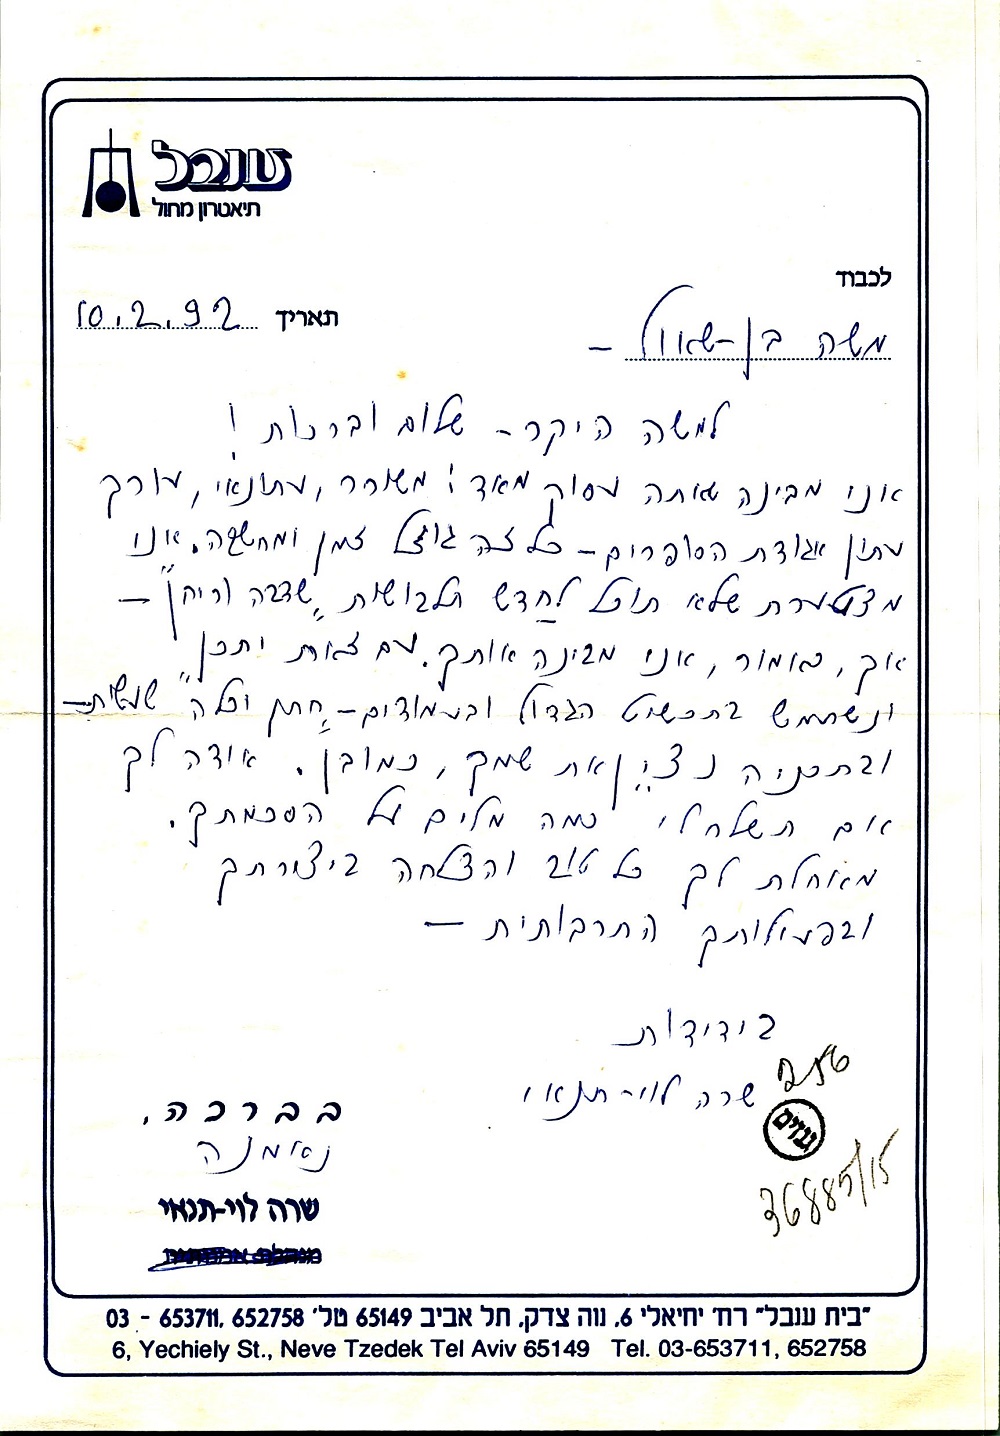 ענבל
תיאטרון מחול
לכבוד
משה בן-שאול –
תאריך 10.2.92
למשה היקר – שלום וברכות !
אני מבינה שאתה עסוק מאד ! משורר, עתונאי, עורך
עתון אגודת הסופרים – כל זה גוזל זמן ומחשבה. אני
מצטערת שלא תוכל לחדש תלבושות "
אך, כאמור, אני מבינה אותך. עם זאת יתכן
ונשתמש בתכשיט הגדול ובעמודים – "חתן וכלה" שעשית –
ובתכניה נציין את שמך, כמובן. אודה לך
אם תשלח לי כמה מלים על הסכמתך.
מאחלת לך כל טוב והצלחה ביצירתך
ובפעילותך התרבותית –
בידידות
שרה לוי-תנאי
בברכה,
נאמנה
שרה לוי-תנאי
256
גנזים
36885/15
"בית ענבל" רח' יחיאלי 6, נווה צדק, תל אביב 65149 טל' 652758 ,653711 - 03
6, Yechiely St., Neve Tzedek Tel Aviv 65149 Tel. 03-653711, 652758